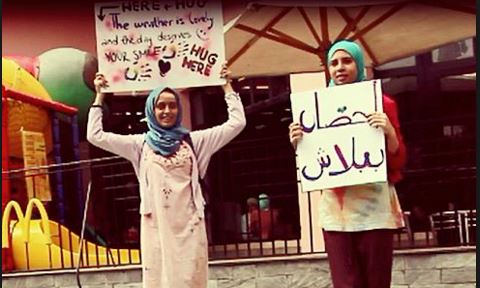 HERE HUG
The weather is lovely
and the day deserves
YOUR SMILE
HUG
HERE
احضن
ببلاش